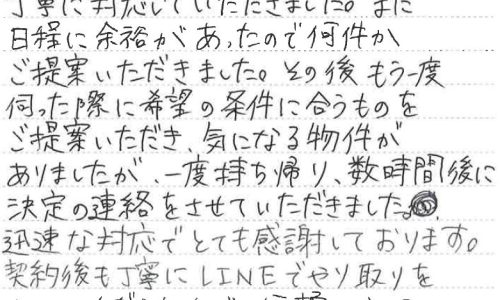 丁寧に対応していただきました。また
日程に余裕があったので何件か
ご提案いただきました。その後もう一度
伺った際に希望の条件に合うものを
ご提案いただき、気になる物件が
ありましたが、一度持ち帰り、数時間後に
決定の連絡をさせていただきました。
迅速な対応でとても感謝しております。
契約後も丁寧にLINEでやり取りを